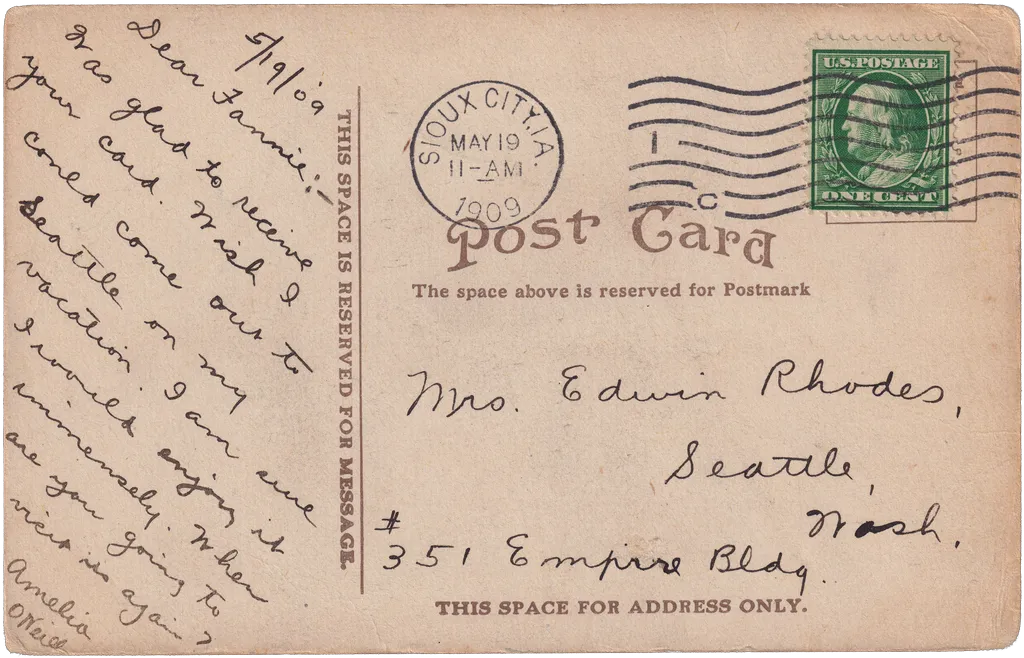 5/19/09
Dear Fannie:-
Was glad to receive
your card. Wish I
could come out to
Seattle on my
vacation. I am sure
I would enjoy it
immensely. When
are you going to
visit us again?
Amelia
O'Neill
THIS SPACE IS RESERVED FOR MESSAGE.
SIOUX CITY, IA.
MAY 19
11-AM
1909
1
C
U.S. POSTAGE
ONE CENT
Post Card
The space above is reserved for Postmark
Mrs. Edwin Rhodes,
Seattle,
Wash.
#
351 Empire Bldg.
THIS SPACE FOR ADDRESS ONLY.